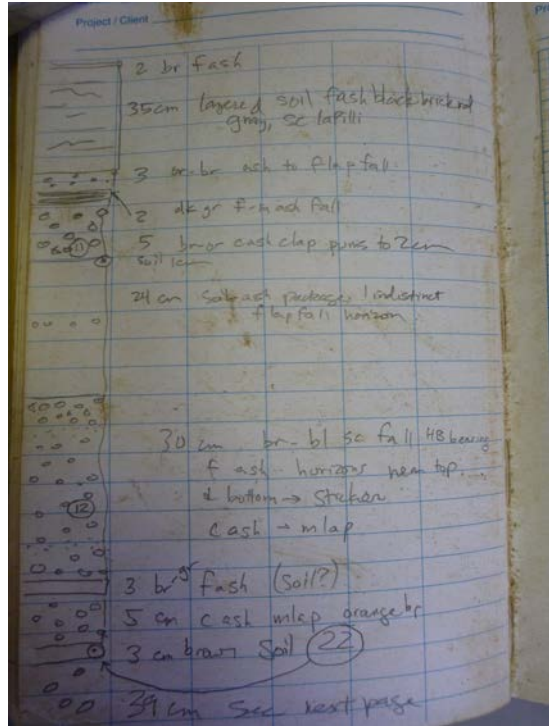 Project / Client
2 br fash
35cm layered soil fash black brick red
gray, sc lapilli
3 or-br ash to flap fall
2 dk gr f-m ash fall
5 br-or cash clap pums to 2cm
11
soil 1cm
24 cm soil-ash package, 1 indistinct
flap fall horizon
30 cm br-bl sc fall HB bearing
f ash horizons near top
& bottom →
12
cash → mlap
3 br-gr fash (soil?)
5 cm cash mlap orange br
3 cm brown soil 22
39 cm see next page